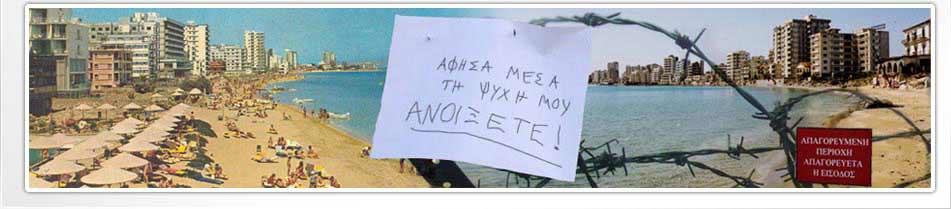 ΑΦΗΣΑ ΜΕΣΑ
ΤΗ ΨΥΧΗ ΜΟΥ
ΑΝΟΙΞΕΤΕ!
ΑΠΑΓΟΡΕΥΜΕΝΗ
ΠΕΡΙΟΧΗ
ΑΠΑΓΟΡΕΥΕΤΑ
Η ΕΙΣΟΔΟΣ